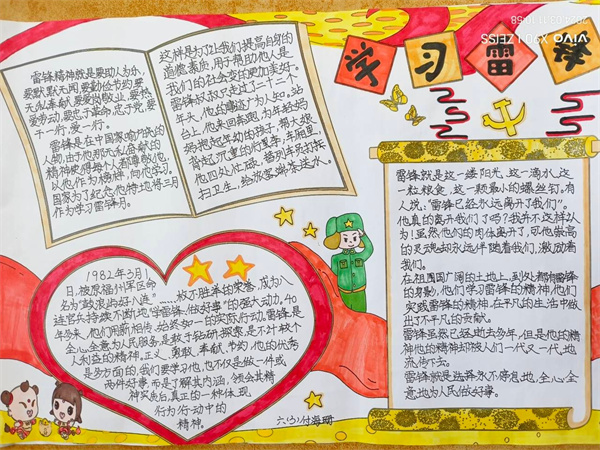 学习雷锋
雷锋精神就是要助人为乐,
要默默无闻,要勤俭节约,要
无私奉献,要爱岗敬业,要热
爱劳动,要忠于革命,忠于党,要
干一行,爱一行。
雷锋是在中国家喻户晓的
人物,由于他那无私奉献的
精神使得每个人都尊敬他,
以他作为榜样,向他学习。
国家为了纪念他特地将三月
作为学习雷锋月。
这样是为了让我们提高自身的
道德素质,用于帮助他人是
我们的社会变的更加美好。
雷锋叔叔只走过了二十二个
年头,他的事迹广为人知。站
台上,他来回奔跑,为年轻妈
妈抱起年幼的孩子,帮大娘
背起沉重的行李;车厢里,
他四处忙碌,替列车员打
扫卫生,给旅客端茶送水。
1982年3月1
日,被原福州军区命
名为"鼓浪屿好八连"
数不胜举的荣誉,成为八
连官兵持续不断地"学雷锋,做好事"的强大动力。40
年多来,他们用新相传,始终如一的实际行动,雷锋是
全心全意为人民服务,是敢于钻研探索,是不计较个
人利益的精神。正义、勇敢、奉献、节约,他的优秀
是多方面的,我们要学习他,也不仅是做一件或
两件好事,而是了解其内涵,领会其精
神实质后,真正的一种体现,
行为行动中的
精神。
雷锋就是这一缕阳光,这一滴水,这
一粒粮食,这一颗最小的螺丝钉。有
人说:"雷锋已经永远离开我们"。
他真的离开我们了吗?我并不这样认
为!虽然他们的肉体离开了,可他崇高
的灵魂却永远伴随着我们,激励着
我们。
在祖国广阔的土地上,到处都有雷锋
的身影,他们学习雷锋的精神,他们
实践雷锋的精神,在平凡的生活中做
出了不平凡的贡献。
雷锋虽然已经逝去多年,但是他的精
神他的精神却被人们一代又一代地
流传下去。
雷锋就是选择永不停息地,全心全
意地为人民做好事。
六(3)付海珊
vivo X90 | ZEISS